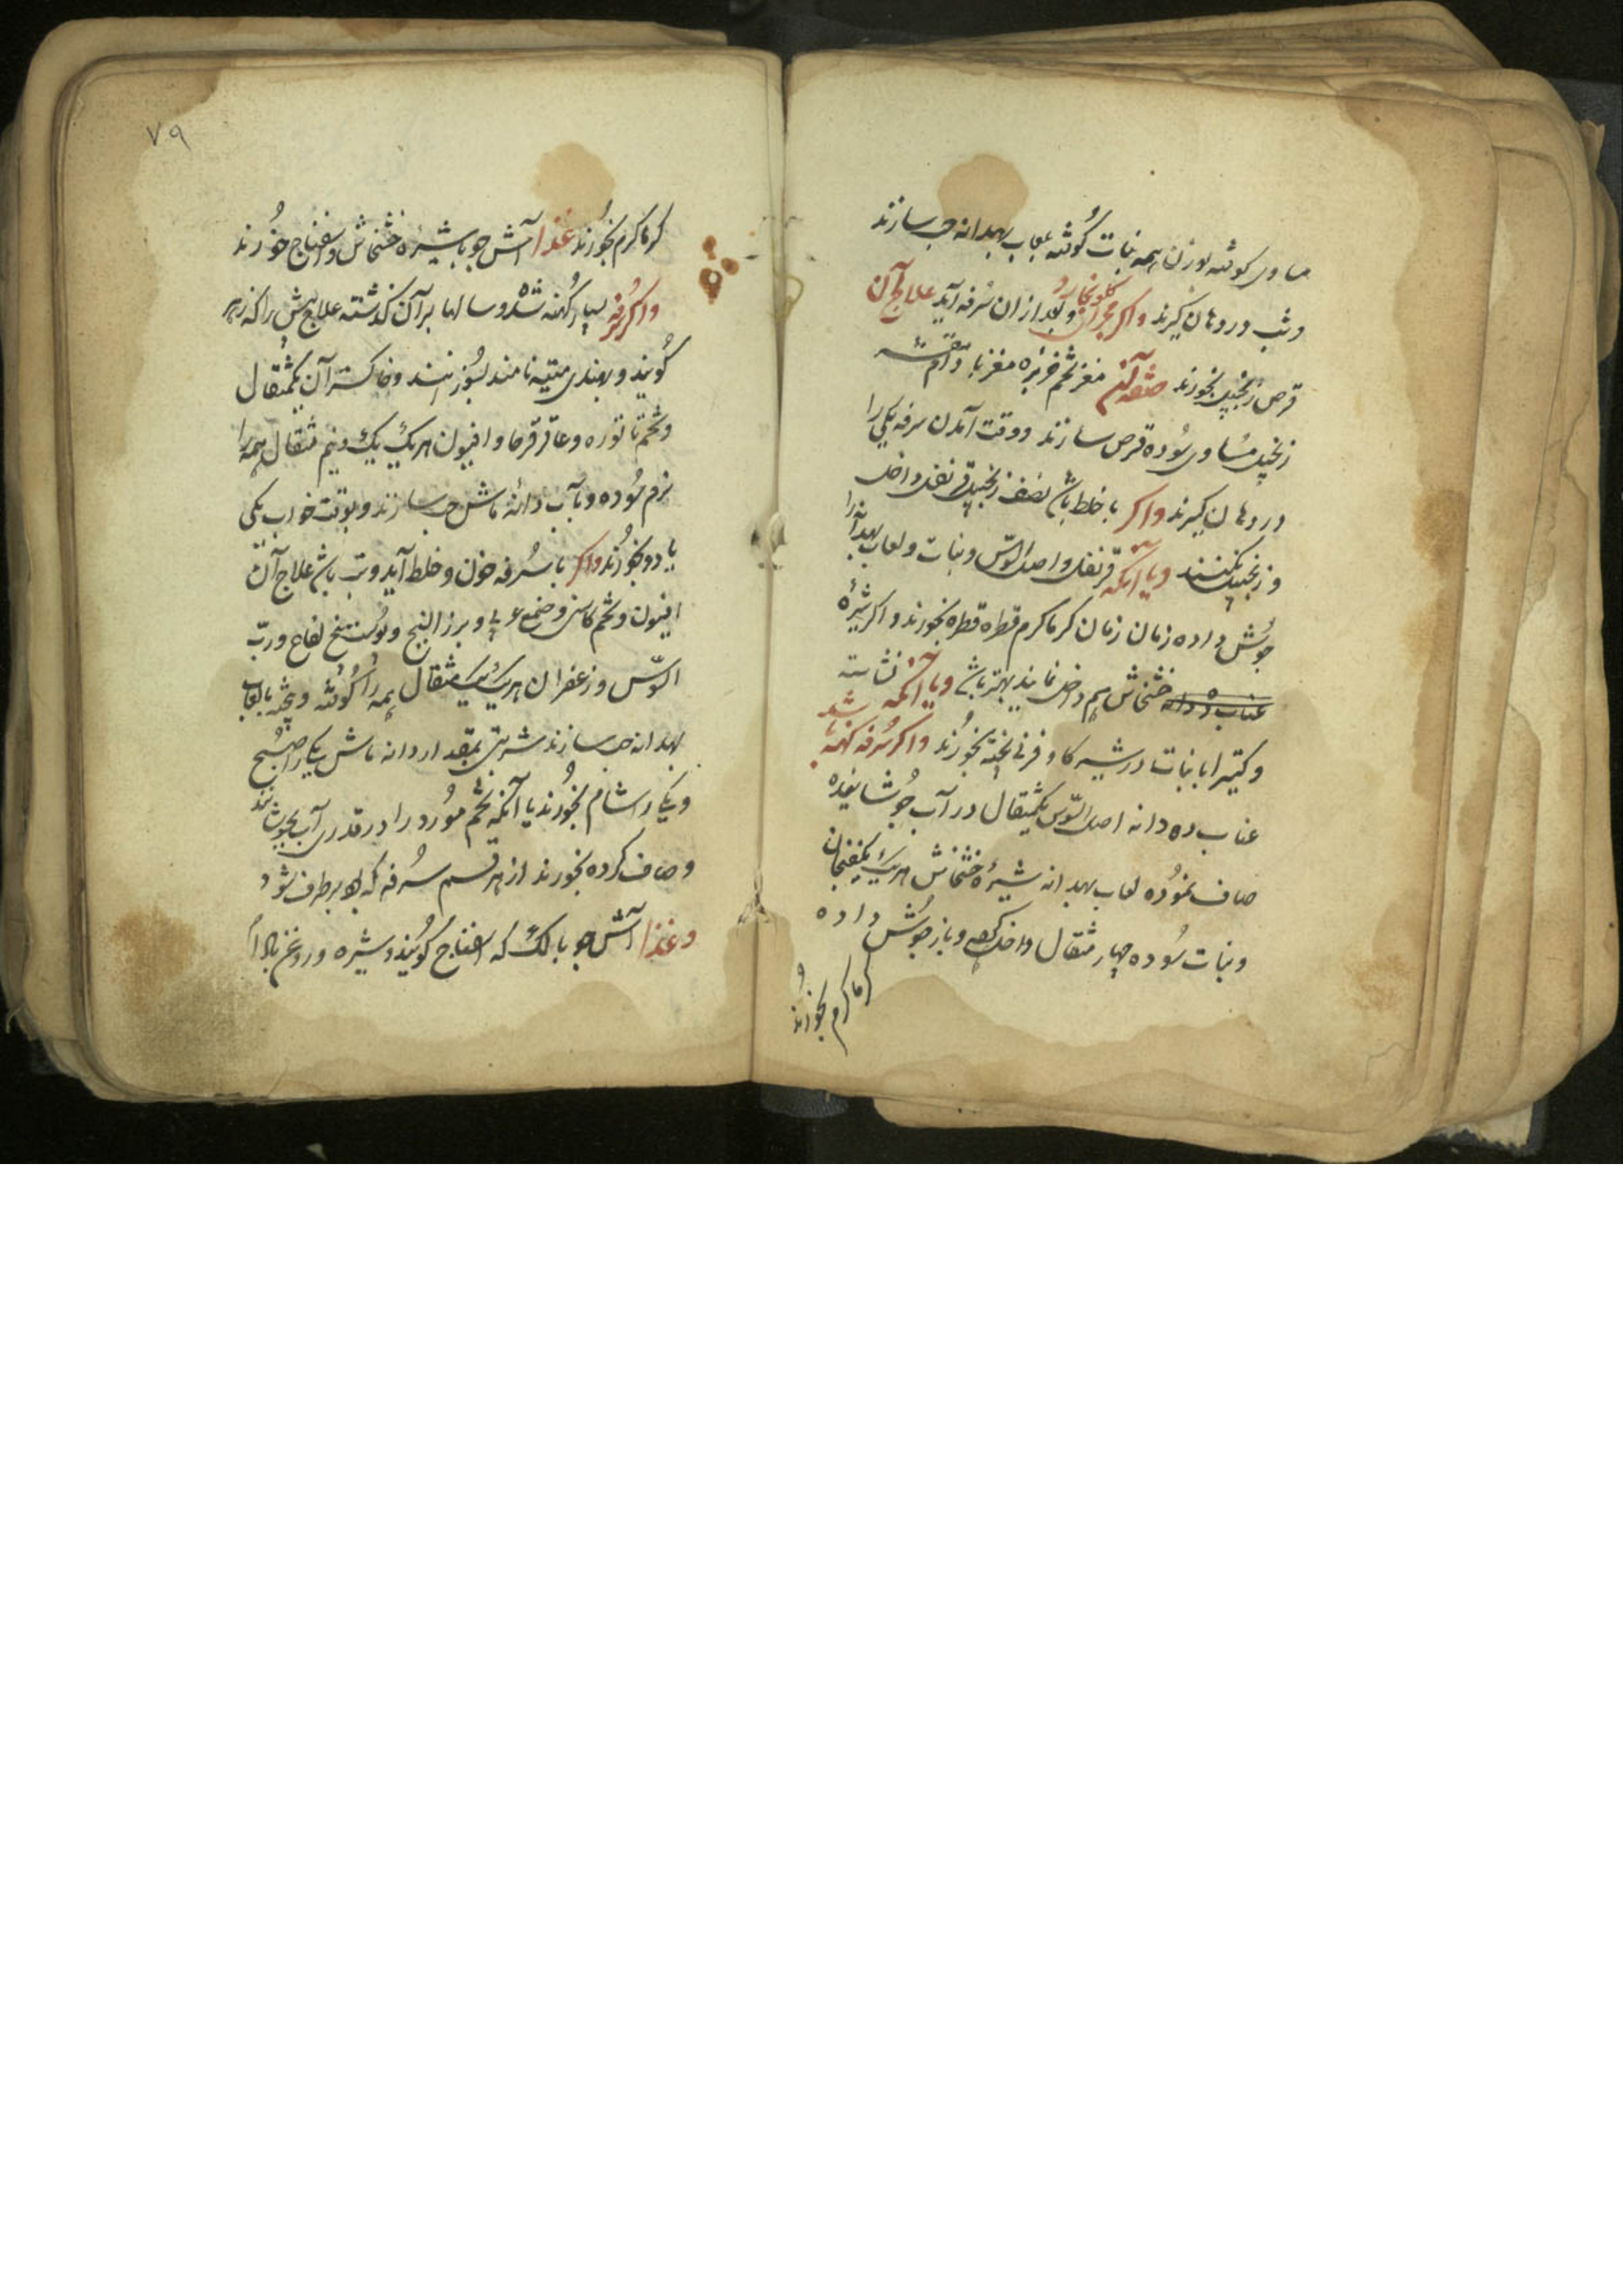 مساوی کوفته بوزن همه نبات کوفته بلعاب بهدانه حب سازند
وشب در دهان گیرند واکر مجرای کلو بخارد وبعد ازان سرفه آید علاج آن
قرص زنجبیل بخورند صفة آن مغز تخم خربزه مغز بادام مقشر
زنجبیل مساوی سوده قرص سازند ووقت آمدن سرفه یکی را
در دهان گیرند واکر با خلط باشد نصف زنجبیل قرنفل داخل
وزنجبیل نکنند ویا آنکه قرنفل واصل السوس ونبات ولعاب بهدانه را
جوش داده زمان زمان کرماکرم قطره قطره بخورند واکر شیره
خشخاش هم داخل نمایند بهتر باشد ویا آنکه نشاسته
وکتیرا با نبات در شیر کاو فرنی پخته بخورند واکر سرفه کهنه باشد
عناب ده دانه اصل السوس یکمثقال در آب جوشانیده
صاف نموده لعاب بهدانه شیرهٔ خشخاش هریک یکفنجان
ونبات سوده چهار مثقال داخل کرده وباز جوش داده
کرماکرم بخورند
٧٩
کرماکرم بخورند غذا آش جو با شیره خشخاش واسفناج خورند
واکر سرفه بسیار کهنه شده وسالها برآن کذشته علاج پش را که زهر
کویند وبهندی متیه نامند بسوزانند وخاکستر آن یکمثقال
وتخم تاتوره وعاقرقرحا وافیون هریک یک ونیم مثقال همه را
نرم سوده وبآب دانهٔ ماش حب سازند وبوقت خواب یکی
یا دو بخورند واکر با سرفه خون وخلط آید وتب باشد علاج آن
افیون وتخم کاسنی وصمغ عربی وبرز البنج وپوست بیخ لفاح ورب
السوس وزعفران هریک یکمثقال همه را کوفته وپخته بالعاب
بهدانه حب سازند شربتی بمقدار دانه ماش یکی را صبح
ویکی را شام بخورند یا آنکه تخم مورد را در قدری آب بجوشانند
وصاف کرده بخورند از هر قسم سرفه که بود برطرف شود
وغذا آش جو با پالک که اسفناج کویند وشیره وروغن بادام